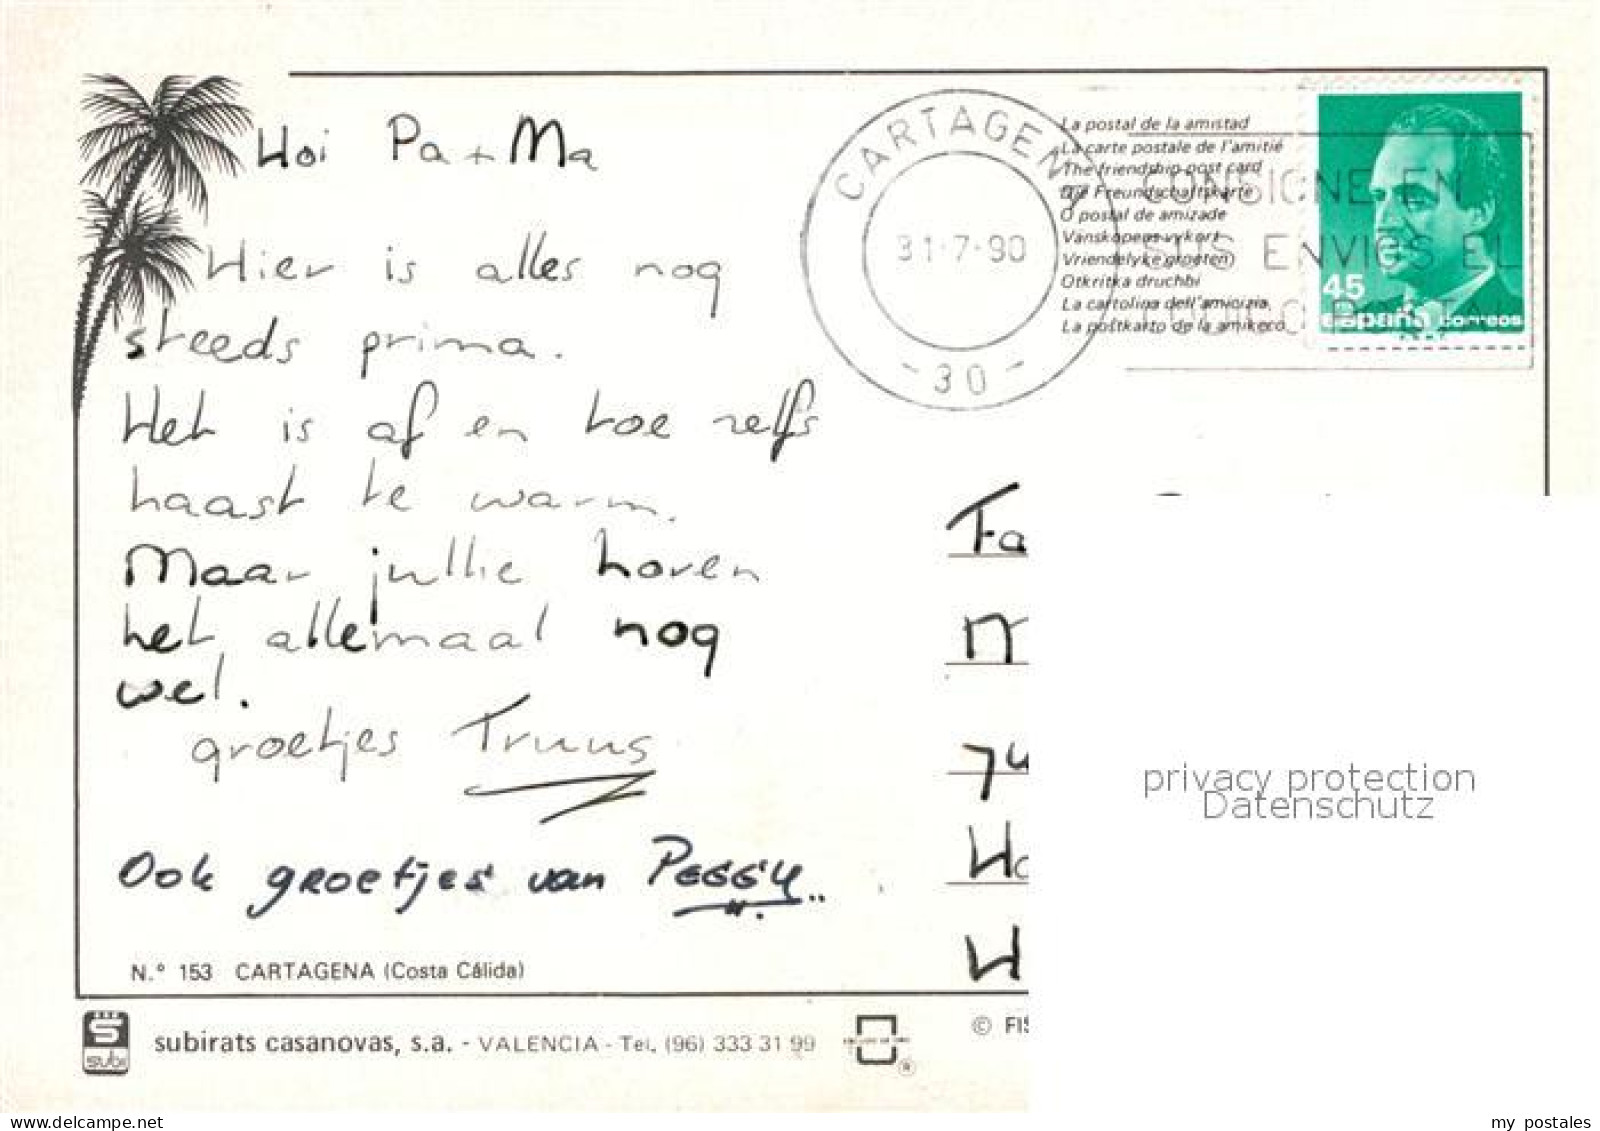 Hoi Pa + Ma
Hier is alles nog
steeds prima.
Het is af en toe zelfs
haast te warm.
Maar jullie horen
het allemaal nog
wel.
groetjes Truus
Ook groetjes van PEGGY
N.° 153 CARTAGENA (Costa Cálida)
subirats casanovas, s.a. - VALENCIA - Tel. (96) 333 31 99
subi
CARTAGENA
31-7-90
- 30 -
La postal de la amistad
La carte postale de l'amitié
The friendship post card
Die Freundschaftskarte
O postal de amizade
Vänskapens vykort
Vriendelyke groeten
Otkritka druchbi
La cartolina dell'amicizia
La poŝtkarto de la amikeco
CONSIGNE EN
SUS ENVIOS EL
CODIGO POSTAL
45
España correos
Fa
M
Ho
H
© FIS
privacy protection
Datenschutz
www.delcampe.net
my_postales